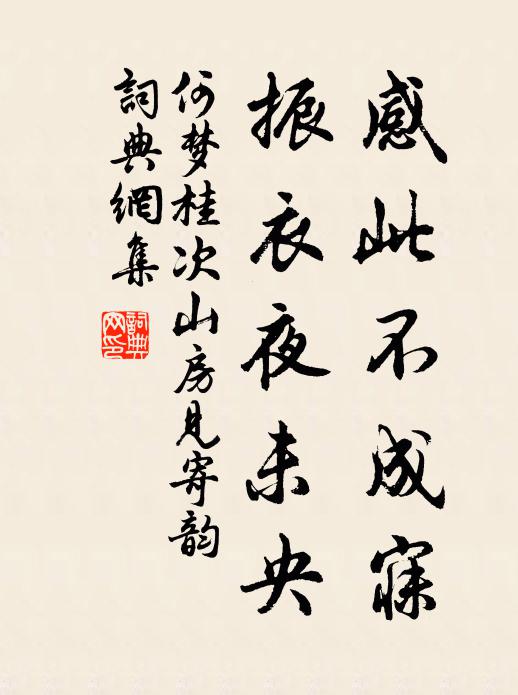 感此不成寐
振衣夜未央
何梦桂次山房見寄韵
詞典網集
詞典网印